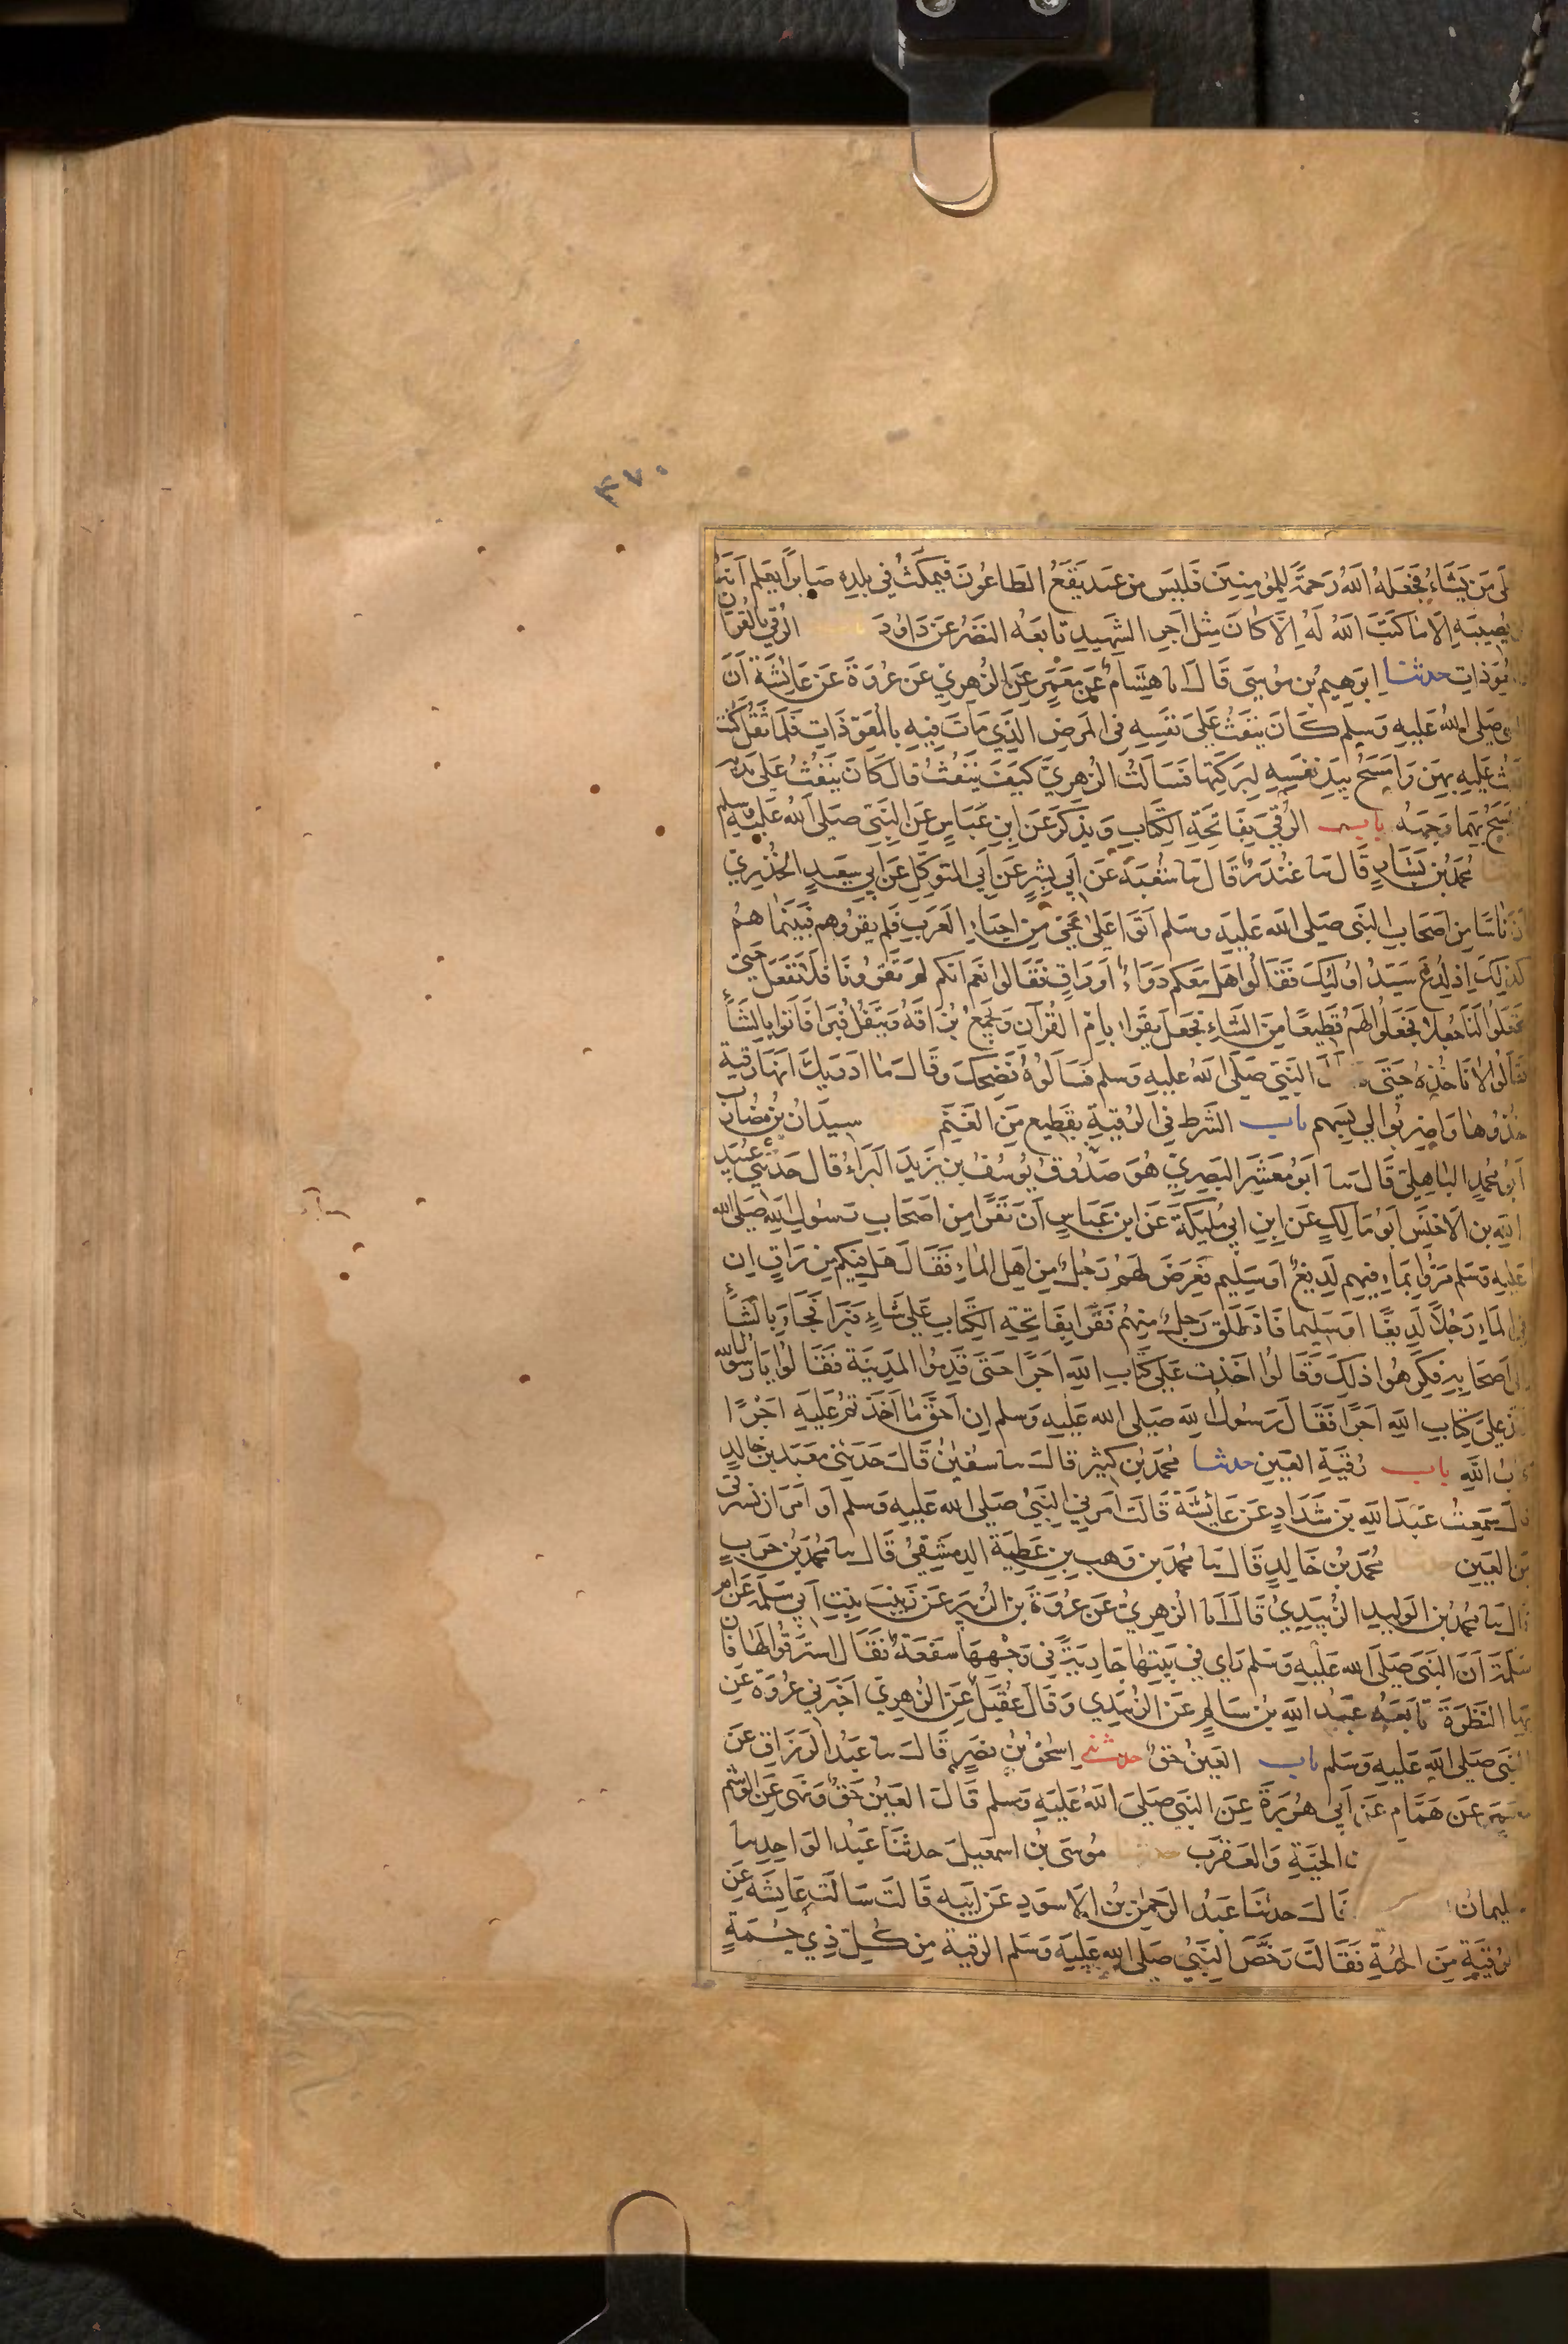 ٤٧٠
لى من يشاء فجعله الله رحمة للمؤمنين فليس من عبد يقع الطاعون فيمكث في بلده صابرا يعلم انه
لن يصيبه الا ما كتب الله له الا كان مثل اجر الشهيد تابعه النضر عن داود باب الرقي بالقران
والمعوذات حدثنا ابرهيم بن موسى قال انا هشام عن معمر عن الزهري عن عروة عن عائشة ان
النبي صلى الله عليه وسلم كان ينفث على نفسه في المرض الذي مات فيه بالمعوذات فلما ثقل كنت
انفث عليه بهن وامسح بيد نفسه لبركتها فسالت الزهري كيف ينفث قال كان ينفث على يديه
ثم يمسح بهما وجهه باب الرقي بفاتحة الكتاب ويذكر عن ابن عباس عن النبي صلى الله عليه وسلم
حدثنا محمد بن بشار قال نا غندر قال نا شعبة عن ابي بشر عن ابي المتوكل عن ابي سعيد الخدري
ان ناسا من اصحاب النبي صلى الله عليه وسلم اتوا على حي من احياء العرب فلم يقروهم فبينما هم
كذلك اذ لدغ سيد اوليك فقالوا هل معكم دواء او راق فقالوا نعم انكم لم تقرونا فلا نفعل حتى
تجعلوا لنا جعلا فجعلوا لهم قطيعا من الشاء فجعل يقرا بام القرآن ويجمع بزاقه ويتفل فبرا فاتوا بالشاء
فقالوا لا ناخذه حتى النبي صلى الله عليه وسلم فسالوه فضحك وقال ما ادريك انها رقية
خذوها واضربوا لي بسهم باب الشرط في الرقية بقطيع من الغنم سيدان بن مضارب
ابو محمد الباهلي قال نا ابو معشر البصري هو صدوق يوسف بن يزيد البراء قال حدثني عبيد
الله بن الاخنس ابو مالك عن ابن ابي مليكة عن ابن عباس ان نفرا من اصحاب رسول الله صلى الله
عليه وسلم مروا بماء فيهم لديغ او سليم فعرض لهم رجل من اهل الماء فقال هل فيكم من راق ان
في الماء رجلا لديغا او سليما فانطلق رجل منهم فقرا بفاتحة الكتاب على شاء فبرا فجاء بالشاء
الى اصحابه فكرهوا ذلك وقالوا اخذت على كتاب الله اجرا حتى قدموا المدينة فقالوا يا رسول الله
اخذ على كتاب الله اجرا فقال رسول الله صلى الله عليه وسلم ان احق ما اخذتم عليه اجرا
كتاب الله باب رقية العين حدثنا محمد بن كثير قال نا سفين قال حدثني معبد بن خالد
قال سمعت عبد الله بن شداد عن عائشة قالت امرني النبي صلى الله عليه وسلم او امر ان نسترقي
من العين حدثنا محمد بن خالد قال نا محمد بن وهب بن عطية الدمشقي قال نا محمد بن حرب
قال نا محمد بن الوليد الزبيدي قال انا الزهري عن عروة بن الزبير عن زينب بنت ابي سلمة عن ام
سلمة ان النبي صلى الله عليه وسلم راى في بيتها جارية في وجهها سفعة فقال استرقوا لها فان
بها النظرة تابعه عبد الله بن سالم عن الزبيدي وقال عقيل عن الزهري اخبرني عروة عن
النبي صلى الله عليه وسلم باب العين حق حدثني اسحق بن نصر قال نا عبد الرزاق عن
معمر عن همام عن ابي هريرة عن النبي صلى الله عليه وسلم قال العين حق ونهى عن الوشم
الحية والعقرب حدثنا موسى بن اسمعيل حدثنا عبد الواحد نا
سليمان قال حدثنا عبد الرحمن بن الاسود عن ابيه قالت سالت عايشة عن
الرقية من الحمة فقالت رخص النبي صلى الله عليه وسلم الرقية من كل ذي حمة